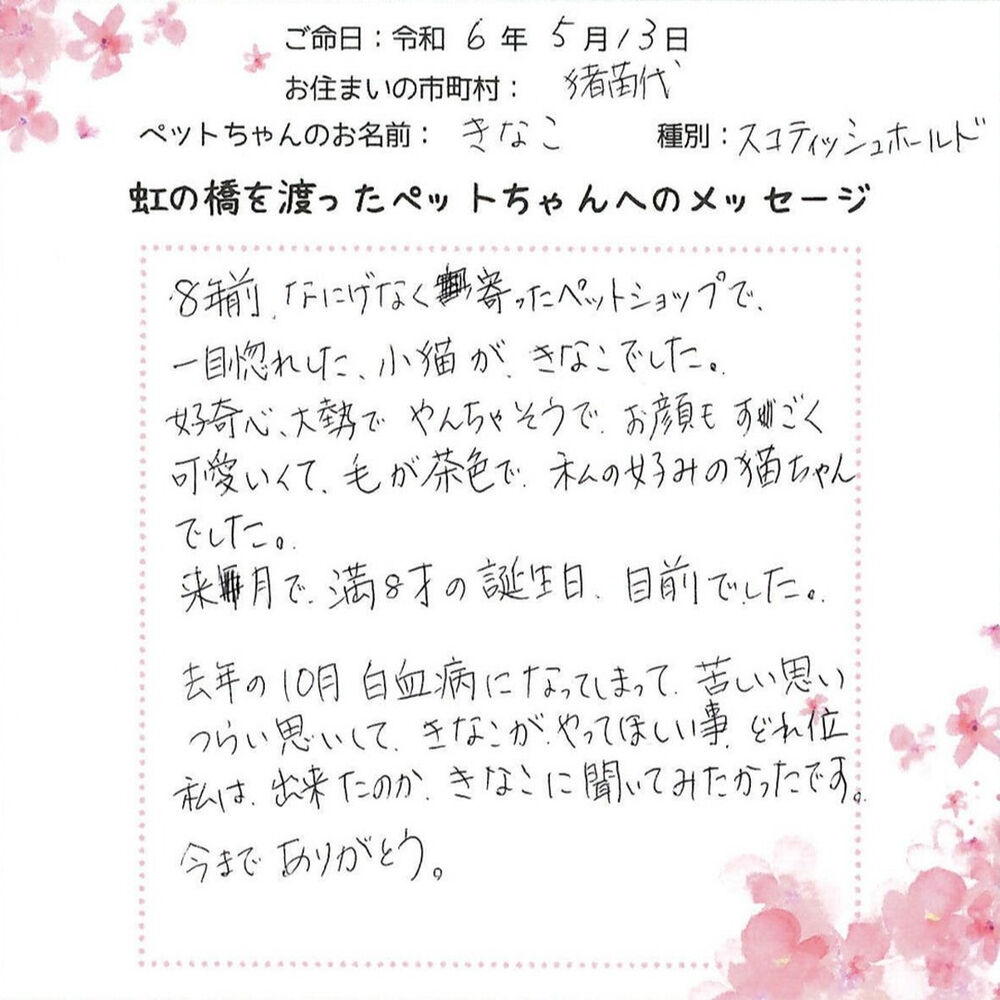 ご命日：令和 6 年 5 月 13 日
お住まいの市町村： 猪苗代
ペットちゃんのお名前： きなこ 種別：スコティッシュホールド
虹の橋を渡ったペットちゃんへのメッセージ
8年前、なにげなく寄ったペットショップで、
一目惚れした、小猫が、きなこでした。
好奇心、大勢で やんちゃそうで、お顔も すごく
可愛いくて、毛が茶色で、私の好みの猫ちゃん
でした。
来月で、満8才の誕生日、目前でした。
去年の10月 白血病になってしまって、苦しい思い
つらい思いして、きなこが、やってほしい事、どれ位
私は、出来たのか、きなこに聞いてみたかったです。
今まで ありがとう。